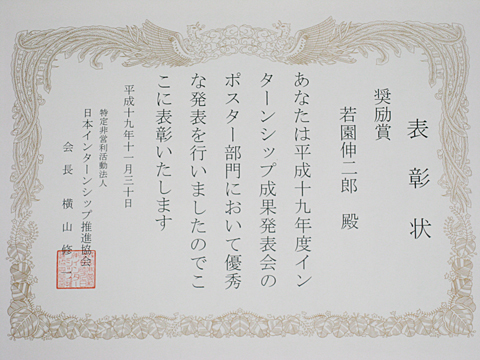 表彰状
奨励賞
若園伸二郎 殿
あなたは平成十九年度イン
ターンシップ成果発表会の
ポスター部門において優秀
な発表を行いましたのでこ
こに表彰いたします
平成十九年十一月三十日
特定非営利活動法人
日本インターンシップ推進協会
会長 横山修一